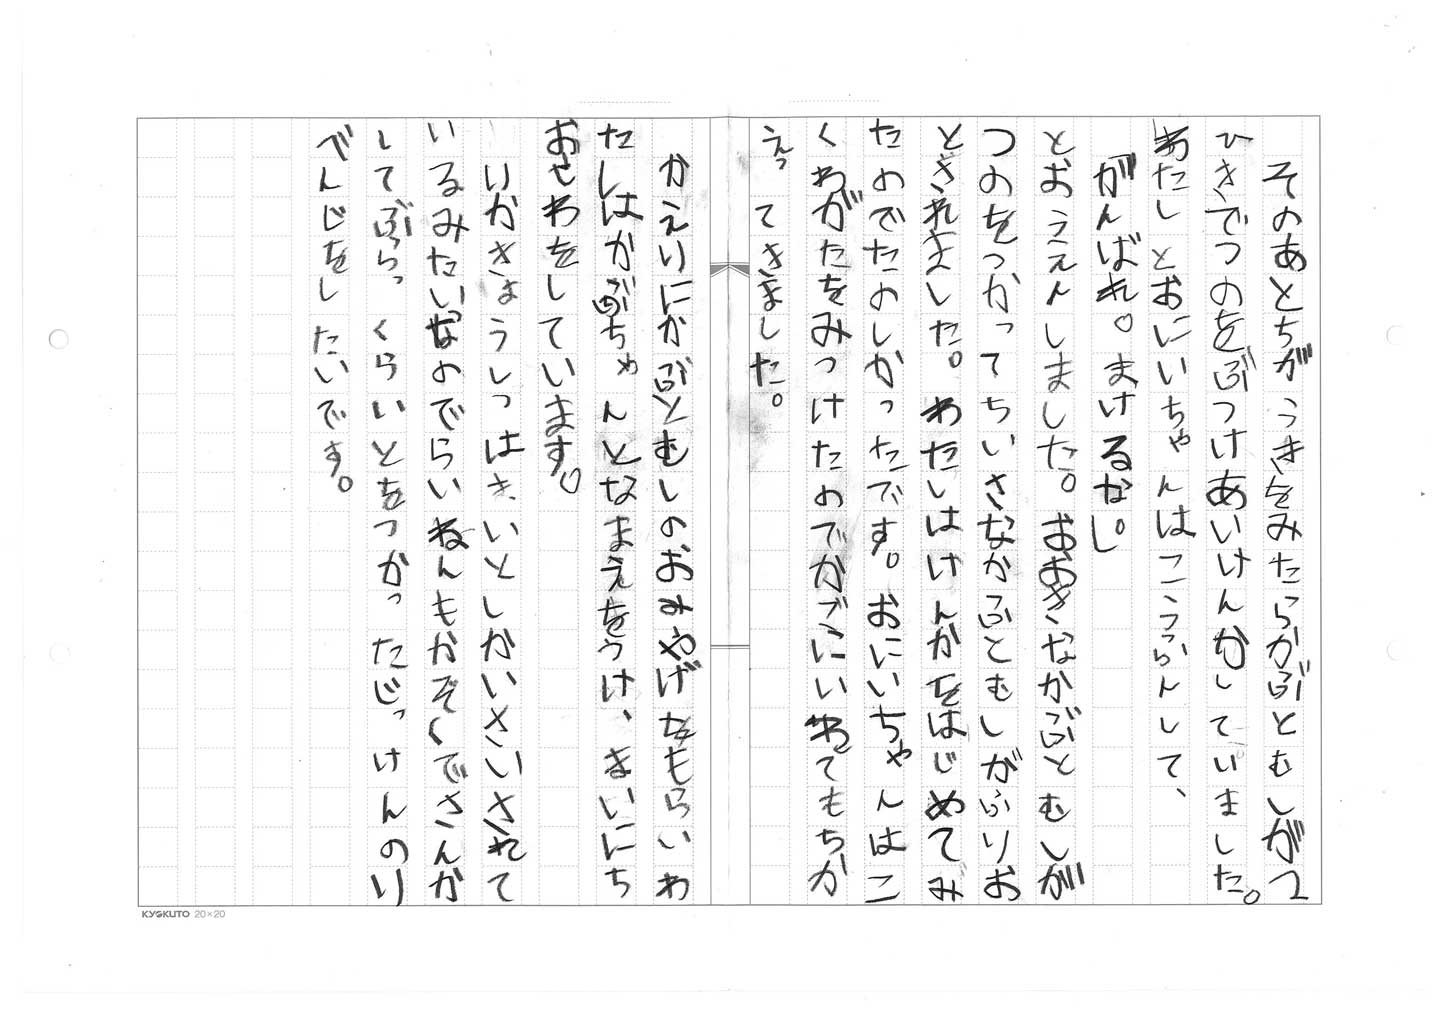 そのあとちがうきをみたらかぶとむしが2
ひきでつのをぶつけあいけんかしていました。
わたしとおにいちゃんはこうふんして、
「がんばれ。まけるな。」
とおうえんしました。おおきなかぶとむしが
つのをつかってちいさなかぶとむしがふりお
とされました。わたしはけんかをはじめてみ
たのでたのしかったです。おにいちゃんはこ
くわがたをみつけたのでかごにいれてもちか
えってきました。
かえりにかぶとむしのおみやげをもらいわ
たしはかぶちゃんとなまえをつけ、まいにち
おせわをしています。
りかきょうしつはき、いとしかいさいされて
いるみたいなのでらいねんもかぞくでさんか
してぶらっくらいとをつかったじっけんのり
べんじをしたいです。
KYOKUTO 20×20